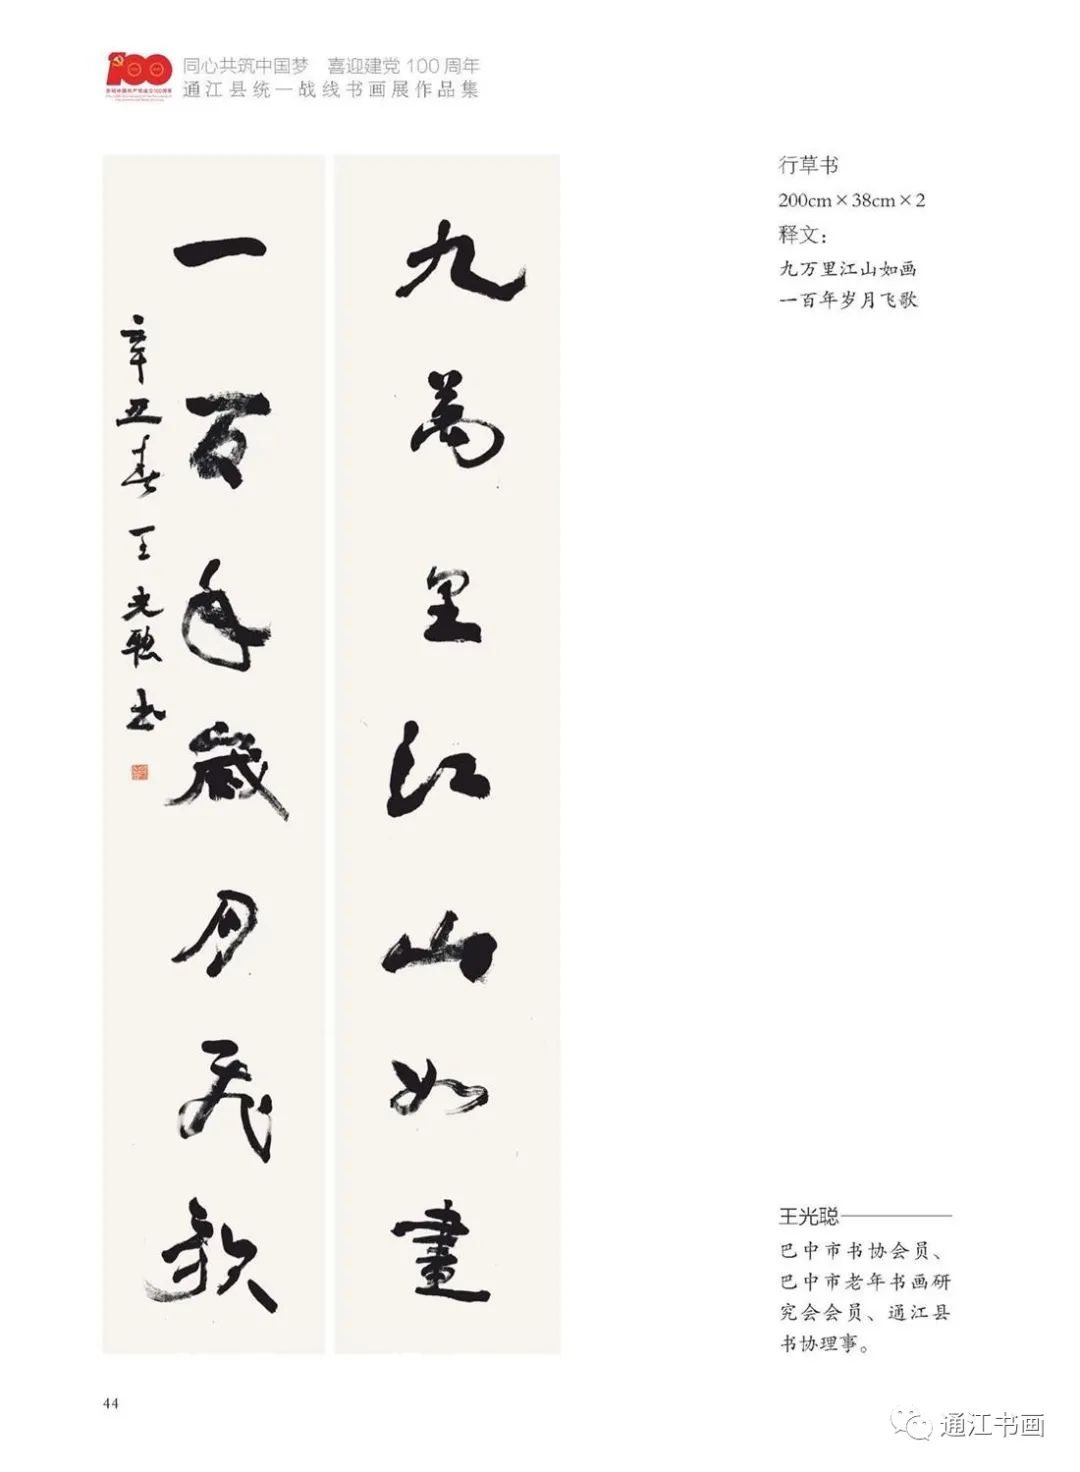 100
庆祝中国共产党成立100周年
同心共筑中国梦　喜迎建党100周年
通江县统一战线书画展作品集
九萬里江山如畫
一百年歲月飛歌
辛丑春王光聪书
行草书
200cm×38cm×2
释文：
九万里江山如画
一百年岁月飞歌
王光聪
巴中市书协会员、
巴中市老年书画研
究会会员、通江县
书协理事。
44
通江书画